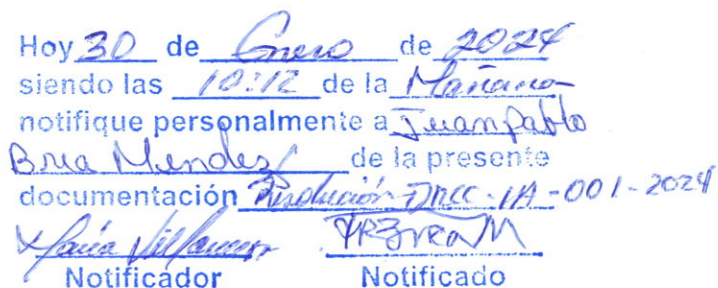 Hoy 30 de Enero de 2024
siendo las 10:12 de la Mañana
notifique personalmente a Juan Pablo
Brea Mendez de la presente
documentación Resolución DNCC-IA-001-2024
María
Notificador Notificado